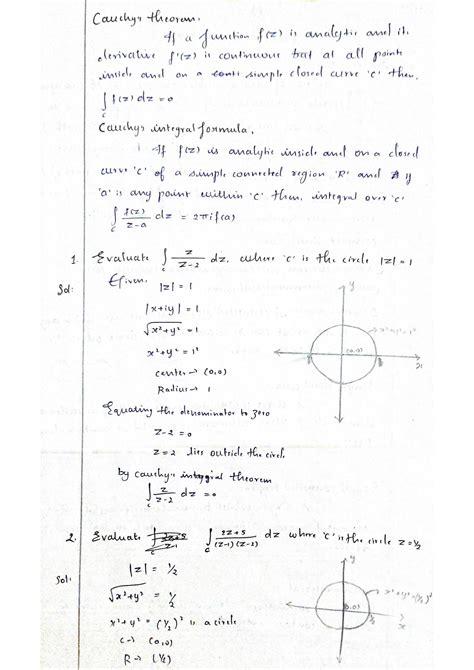 Cauchy's theorem.
If a function f(z) is analytic and it's
derivative f'(z) is continuous that at all points
inside and on a simple closed curve 'c' then,
∫_c f(z) dz = 0
Cauchy's integral formula.
If f(z) is analytic inside and on a closed
curve 'c' of a simple connected region 'R' and if
'a' is any point within 'c' then, integral over 'c'
∫_c f(z)/(z-a) dz = 2πi f(a)
1. Evaluate ∫_c z/(z-2) dz, where 'c' is the circle |z| = 1
Sol: Given, |z| = 1
y
|x+iy| = 1
√(x²+y²) = 1
x²+y² = 1²
(0,0)
x
center → (0,0)
Radius → 1
Equating the denominator to zero
z-2 = 0
z = 2 lies outside the circle
by cauchy's integral theorem
∫_c z/(z-2) dz = 0
2. Evaluate ∫_c (2z+5)/((z-1)(z-2)) dz where 'c' is the circle z = 1/2
y
Sol: |z| = 1/2
√(x²+y²) = 1/2
x²+y² = (1/2)²
(0,0)
1/2
x
x²+y² = (1/2)² is a circle
C → (0,0)
R → (1/2)